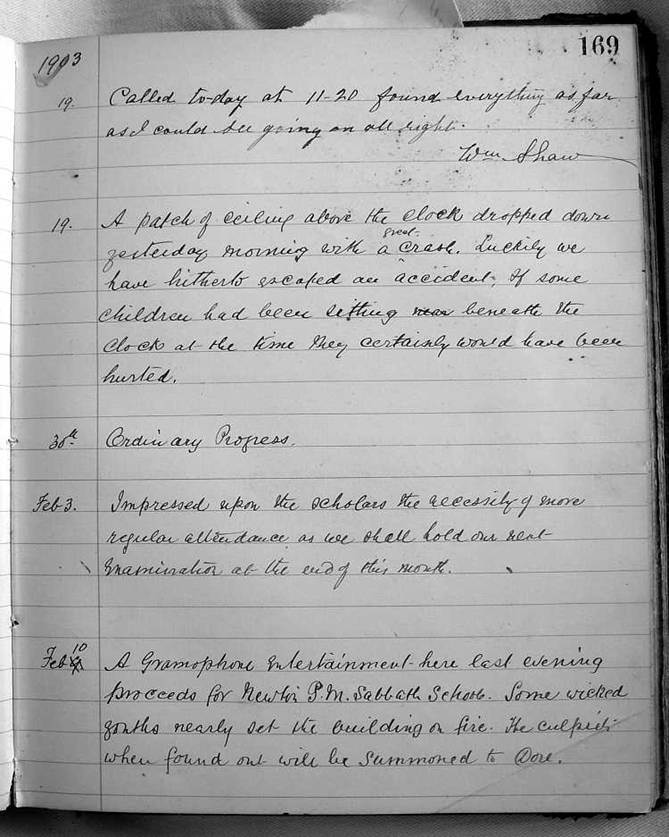 169
1903
19. Called to-day at 11-20 found everything as far
as I could see going on all right.
Wm Shaw
19. A patch of ceiling above the clock dropped down
yesterday morning with a great crash. Luckily we
have hitherto escaped an accident, If some
children had been sitting near beneath the
clock at the time they certainly would have been
hurted.
30th Ordinary Progress.
Feb 3. Impressed upon the scholars the necessity of more
regular attendance as we shall hold our next
Examination at the end of this month.
Feb 10 A Gramophone Entertainment here last evening
proceeds for P.M. Sabbath School. Some wicked
youths nearly set the building on fire. The culprits
when found out will be summoned to Dore.